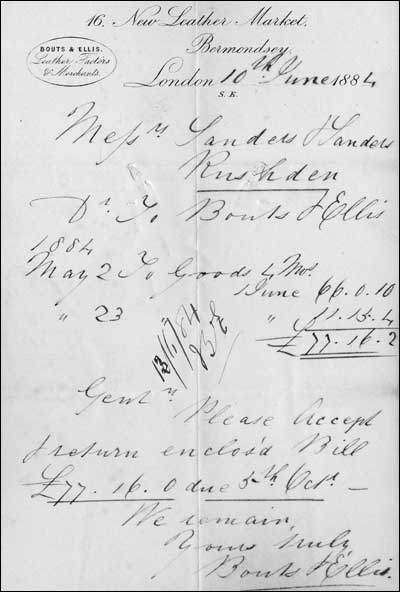 16. New Leather Market.
Bermondsey,
BOUTS & ELLIS.
Leather Factors
& Merchants.
London 10th June 1884
S.E.
Messrs Sanders & Sanders
Rushden
Dr. To Bouts & Ellis
1884
May 2 To Goods 4 Mos.
1 June 66.0.10
" 23 " 11.15.4
£77.16.2
13/6/84
Gentn
Please Accept
& return enclos'd Bill
£77.16.0 due 5th Octr. —
We remain,
Yours truly,
Bouts & Ellis.